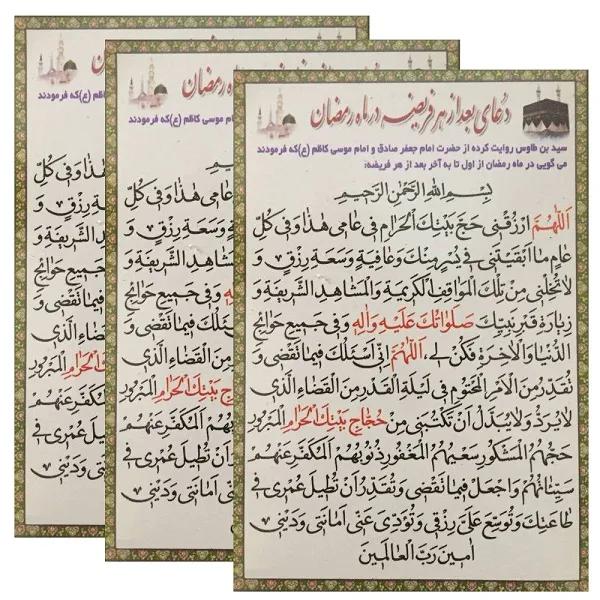 دعای بعد از هر فریضه در ماه رمضان
سید بن طاوس روایت کرده از حضرت امام جعفر صادق و امام موسی کاظم (ع) که فرمودند
می گویی در ماه رمضان از اول تا به آخر بعد از هر فریضه:
بِسْمِ اللهِ الرَّحْمٰنِ الرَّحیمِ
اَللّٰهُمَّ ارْزُقْنی حَجَّ بَیْتِكَ الْحَرامِ فی عامی هٰذا وَفی كُلِّ
عامٍ ما اَبْقَیْتَنی فی یُسْرٍ مِنْكَ وَعافِیَةٍ وَسَعَةِ رِزْقٍ وَ
لاتُخْلِنی مِنْ تِلْكَ الْمَواقِفِ الْكَریمَةِ وَالْمَشاهِدِ الشَّریفَةِ وَ
زِیارَةِ قَبْرِ نَبِیِّكَ صَلَواتُكَ عَلَیْهِ وَالِهِ وَفی جَمیعِ حَوائِجِ
الدُّنْیا وَالْاٰخِرَةِ فَكُنْ لی، اَللّٰهُمَّ اِنّی اَسْئَلُكَ فیما تَقْضی وَ
تُقَدِّرُ مِنَ الْاَمْرِ الْمَحْتُومِ فی لَیْلَةِ الْقَدْرِ مِنَ الْقَضاءِ الَّذی
لایُرَدُّ وَلایُبَدَّلُ اَنْ تَكْتُبَنی مِنْ حُجّاجِ بَیْتِكَ الْحَرامِ الْمَبْرُورِ
حَجُّهُمْ الْمَشْكُورِ سَعْیُهُمْ الْمَغْفُورِ ذُنُوبُهُمْ الْمُكَفَّرِ عَنْهُمْ
سَیِّئاتُهُمْ وَاجْعَلْ فیما تَقْضی وَتُقَدِّرُ اَنْ تُطیلَ عُمْری فی
طاعَتِكَ وَتُوَسِّعَ عَلَیَّ رِزْقی وَتُؤَدِّیَ عَنّی اَمانَتی وَدَیْنی
امینَ رَبَّ الْعالَمینَ